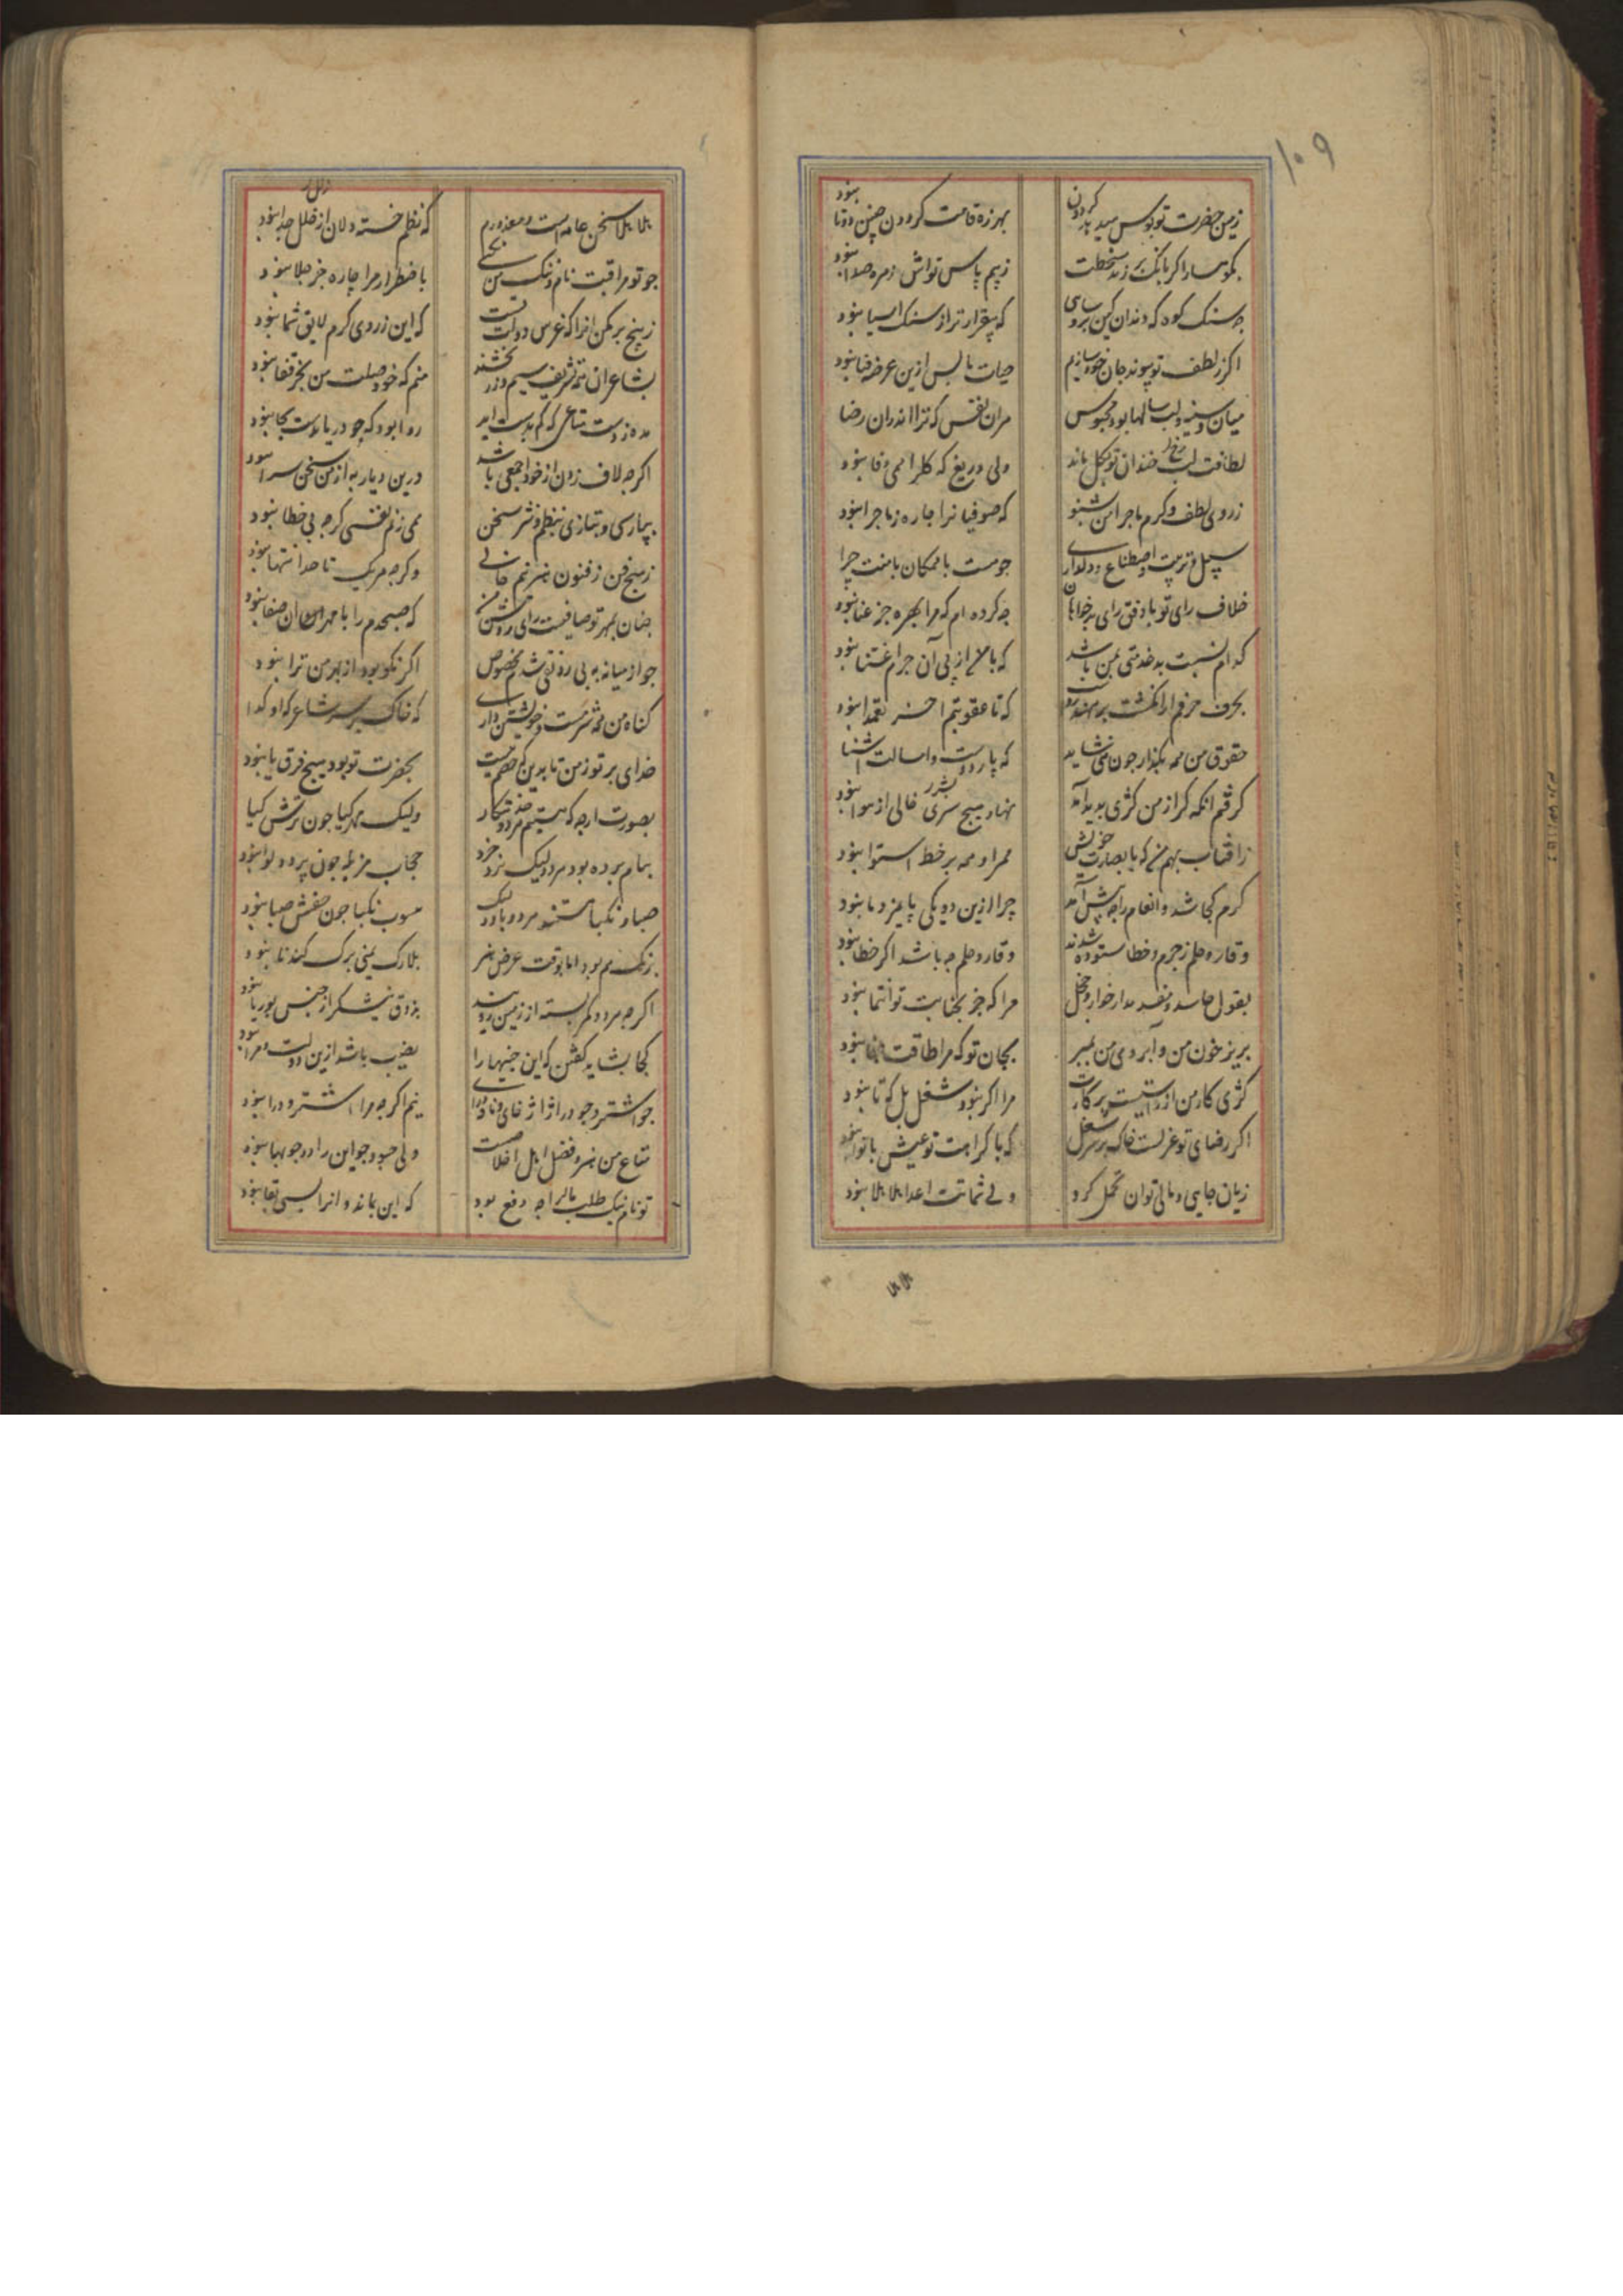 ۱۰۹
زمین حضرت تو بوس میدهد گردون
بهرزه قامت کردون چنین دوتا نبود
بکوهسار اکر بانک بر زند سخطت
ز بیم پاس تواش زهره صدا نبود
چه سنک کوه که دندان کین برو سایی
که بیقرارتر از سنک اسیا نبود
اکر ز لطف تو پیوند جان خود سازیم
حیات ما پس ازین عرضه فنا نبود
میان سینه و لب سالها بود محبوس
مران نفس که ترا اندران رضا نبود
لطافت لب خندان تو بکل ماند
ولی دریغ که کل را همی وفا نبود
ز روی لطف و کرم ماجرای من بشنو
که صوفیانرا چاره ز ماجرا نبود
سبیل تربیت و اصطناع و دلداری
چو هست با همکان با منت چرا نبود
خلاف رای تو با وفق رای بدخواهان
چه کرده ام که مرا بهره جز عنا نبود
کدام نسبت بدخدمتی بمن باشد
که مالش از پی آن جرم اغتنا نبود
بحرف جرمم ار انکشت برنهند
که تا عقوبتم اخر تعمدا نبود
حقوق من همه بکذار چون نمی شاید
که پار دوست و امسالت اشنا نبود
کرفتم انکه کر از من کژی پدید آمد
نهاد هیچ بشر سری خالی از هوا نبود
ز افتاب بهم که با بصارت خویش
ممر او همه بر خط استوا نبود
کرم کجا شد و انعام را چه پیش آمد
چرا ازین دو یکی پایمرد ما نبود
وقار و حلم ز جرم و خطا ستوده شدند
وقار و حلم چه باشد اکر خطا نبود
بقول حاسد و مفسد مدار خوار و خجل
مرا که جز بجنابت تو انتما نبود
بریز خون من و آبروی من بمبر
بجان تو که مرا طاقت جفا نبود
کژی کار من از راستیست پرکارت
مرا اکر نبود شغل بل که تا نبود
اکر رضای تو عزلست خاک بر سر شغل
که با کراهت تو عیش با نوا نبود
زیان جاهی و مالی توان تحمل کرد
ولی شماتت اعدا بلا بلا نبود
بلا بلا
بلا بلا سخن عامه است و معذورم
که نظم خسته دلان از خلل جدا نبود
چو تو مراقبت نام و ننک من نکنی
باضطرار مرا چاره جز جلا نبود
ز بیخ برمکن انرا که غرس دولت تست
که این ز روی کرم لایق شما نبود
بشاعران همه تشریف سیم و زر بخشند
منم که خود صلت من بجز قفا نبود
مده ز دست متاعی که کم بدست اید
روا بود که چو دریات دست بجا نبود
اکرچه لاف زدن از خود ابلهی باشد
درین دیار به از من سخن سرا نبود
بپارسی و بتازی بنظم و نثر سخن
همی زنم نفسی کرچه بی خطا نبود
ز هیچ فن ز فنون هنر نیم خالی
وکرچه هر یک تا حد انتها نبود
چنان بمهر تو صافیست رای روشن من
که صبحدم را با مهر ان صفا نبود
چو از میانه به بی رونقی شدم مخصوص
اکر نکو بود از بهر من ترا نبود
کناه من همه شرمست و خویشتن داری
که خاک بر سر شاعر که او کدا نبود
خدای بر تو ز من تا بدین که خصم منست
بحضرت تو بود هیچ فرق یا نبود
بصورت ارچه که هستیم هر دو خدمتکار
ولیک مهر کیا چون ترش کیا نبود
بنام پرده بود هر دو لیک نزد خرد
حجاب مزبله چون پرده لوا نبود
صبا و نکبا هستند هر دو باد ولیک
هبوب نکبا چون جنبش صبا نبود
برنک هم بود اما بوقت عرض هنر
بلارک یمنی برک کندنا نبود
اکرچه هر دو کمربسته از زمین رویند
بذوق نیشکر از جنس بوریا نبود
کجا بشاید کفتن که این چنینها را
نصیب باشد ازین دولت و مرا نبود
چو اشتر و چو درا ژاژ خای و نادانی
نیم اکرچه مرا اشتر و درا نبود
متاع من هنر و فضل اهل اخلاصست
ولی چو سود چو این را دو جو بها نبود
تو نام نیک طلب مال را چه وقع بود
که این بماند و انرا بسی بقا نبود